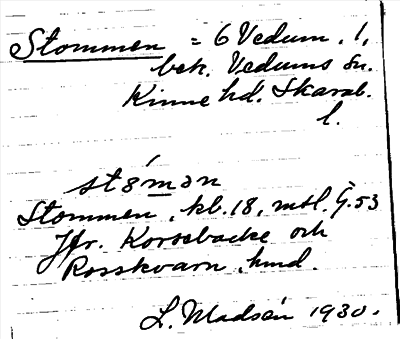 Stommen = 6 Vedum. 1,
bek. Vedums sn.
Kinne hd. Skarab.
l.
stómən
Stommen, kl. 18, mtl. G. 53
Jfr. Korsebacke och
Rosskvarn, hmd.
L. Madsén 1930.